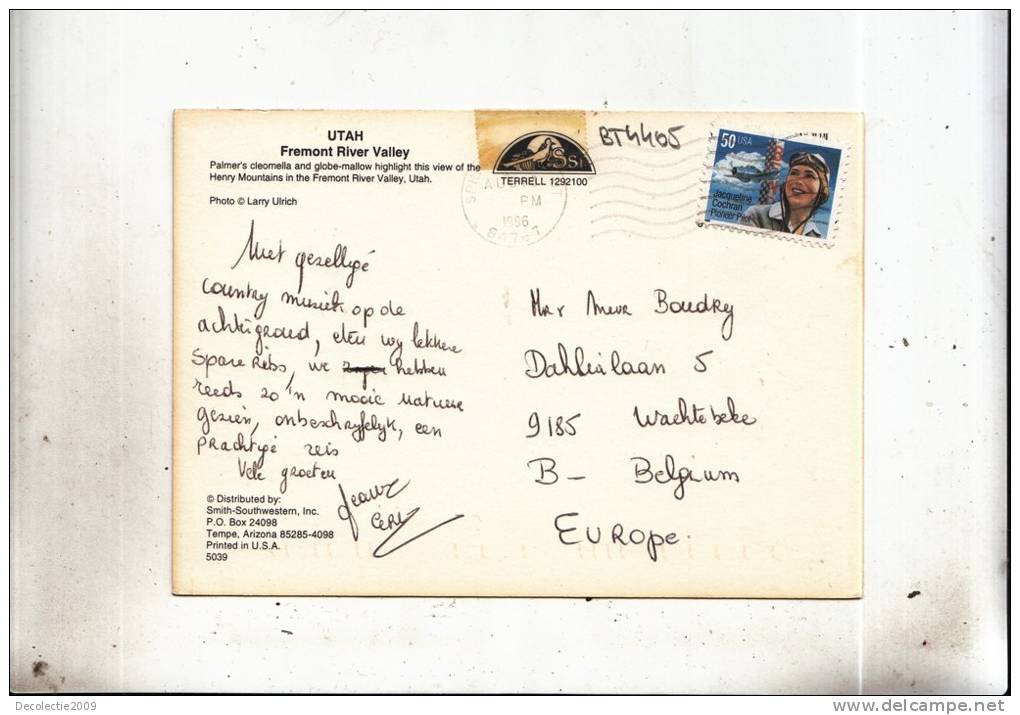 UTAH
Fremont River Valley
Palmer's cleomella and globe-mallow highlight this view of the
Henry Mountains in the Fremont River Valley, Utah.
Photo © Larry Ulrich
TERRELL 1292100
BT4405
PM
1996
50 USA
Jacqueline
Cochran
Pioneer Pilot
Met gezellige
country muziek op de
achtergrond, eten wy lekkere
Spare Ribs, we hebben
reeds zo'n mooie natuur
gezien, onbeschryfelyk, een
prachtige reis
Vele groeten
© Distributed by:
Smith-Southwestern, Inc.
P.O. Box 24098
Tempe, Arizona 85285-4098
Printed in U.S.A.
5039
Mevr Boudry
Dahlialaan 5
9185 Wachtebeke
B - Belgium
EUROPE.
Decolectie2009
www.delcampe.net